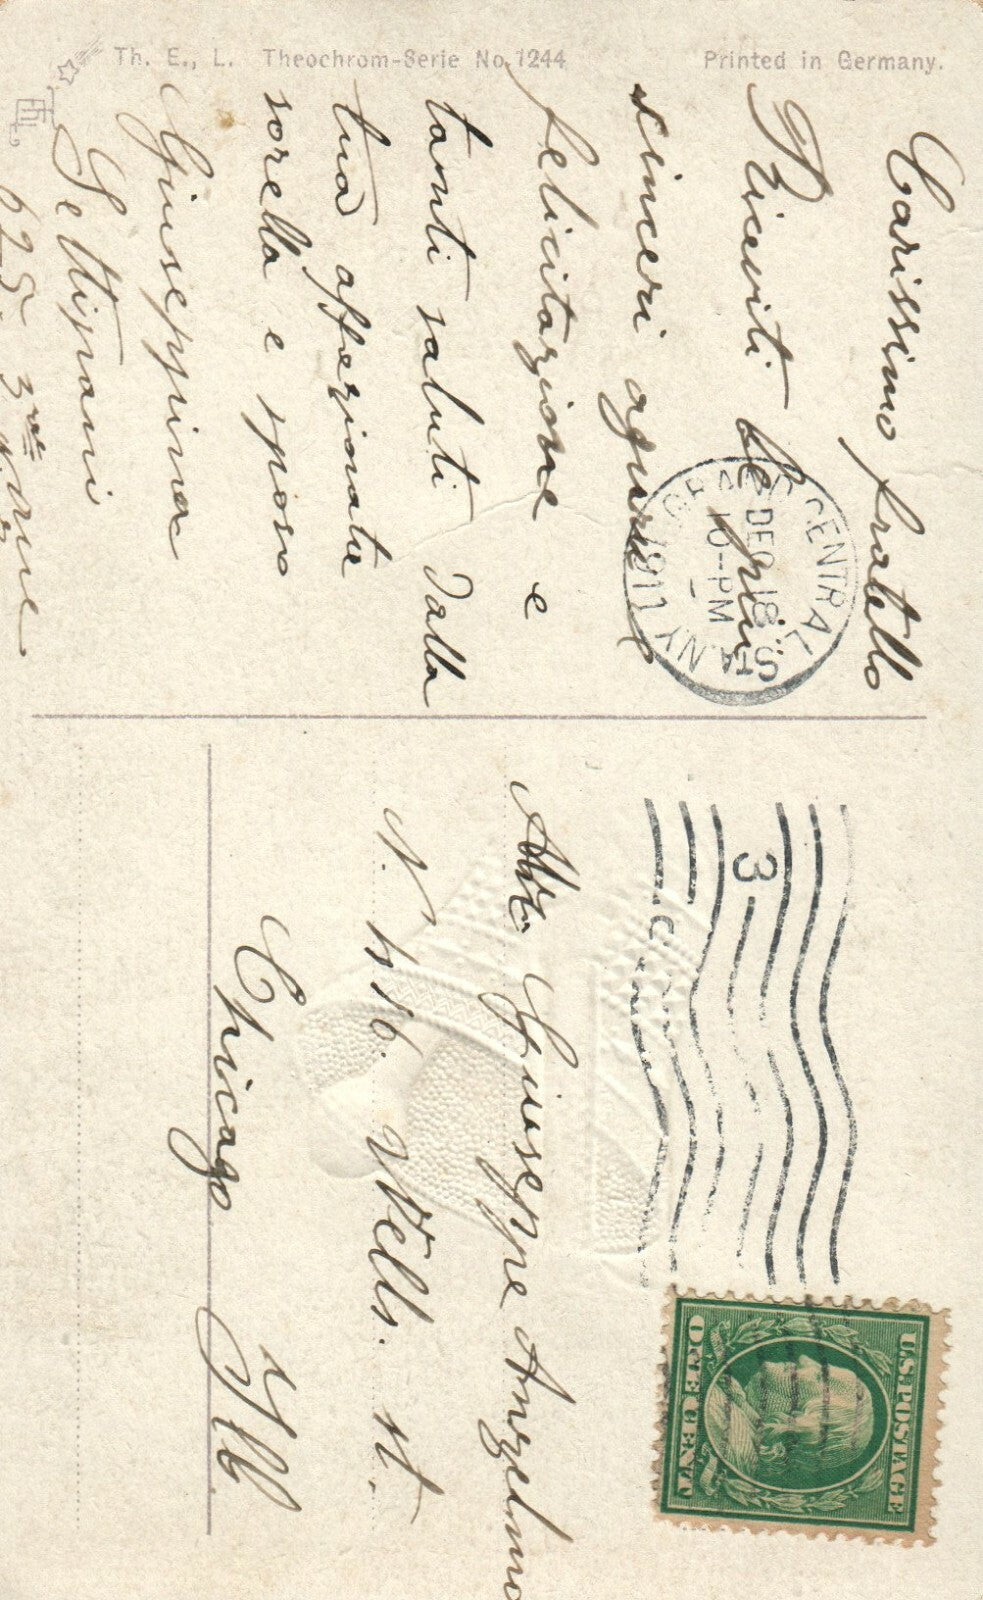 Th. E., L. Theochrom-Serie No. 1244
Printed in Germany.
Carissimo fratello
Riceviti le più
sinceri auguri
felicitazione e
tanti saluti dalla
tua affezionata
sorella e sposo
Giuseppina
Settipani
625. 3rd
GRAND CENTRAL STA. N.Y.
DEC 18
10-PM
1911
3
U.S. POSTAGE
ONE CENT
Giuseppe Anzelmo
N. 1116. Wells. st.
Chicago Ill.